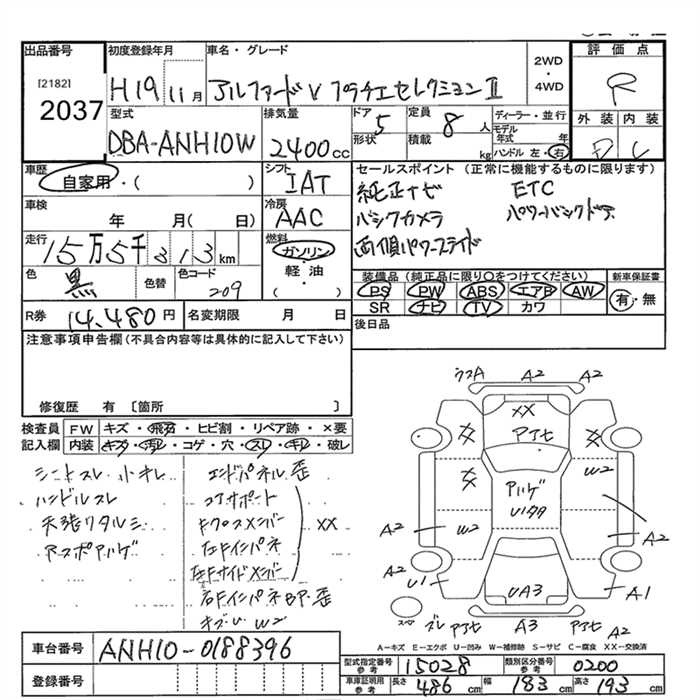 出品番号 初度登録年月 車名・グレード 評価点
[2182]
2037
H19 11月 アルファードV プラチナセレクションⅡ
2WD
・
4WD
R
型式 排気量 ドア 形状 定員 積載 ディーラー・並行 外装 内装
DBA-ANH10W 2400cc 5 8人 kg
モデル年式 年
ハンドル 左・右
D
車歴 シフト セールスポイント (正常に機能するものに限ります)
自家用・( ) IAT 純正ナビ ETC
車検 冷房 バックカメラ パワーバックドア
年 月( 日) AAC
走行 燃料 両側パワースライド
15万5千313km ガソリン・軽油・( )
色 黒 色替 色コード 209
装備品(純正品に限り○をつけてください) 新車保証書
PS PW ABS エアB AW 有・無
SR ナビ TV カワ
R券 14,480円 名変期限 月 日 後日品
注意事項申告欄(不具合内容等は具体的に記入して下さい)
修復歴 有 [箇所 ]
検査員 FW キズ・飛石・ヒビ割・リペア跡・×要
記入欄 内装 キズ・汚レ・コゲ・穴・スレ・キレ・破レ
シートスレ 小キレ
ハンドルスレ
天張リタルミ
アスポアハゲ
エンドパネル歪
コアサポート
Fクロスメンバー XX
左Fインパネ
左Fサイドメンバー
右FインパネBP歪
キズU W2
ウスA A2 A2
XX
アアセ
XX
XX
アハゲ
W2
A2
W2
A2
A2
U1
UA3
A1
スペ
ズレ アアセ A3 アアセ A2
A-キズ E-エクボ U-凹み W-補修跡 S-サビ C-腐食 XX-交換済
車台番号 ANH10-0188396
登録番号
型式指定番号 参考 15028 類別区分番号 参考 0200
車庫証明用 参考 長さ 486cm 幅 183cm 高さ 193cm